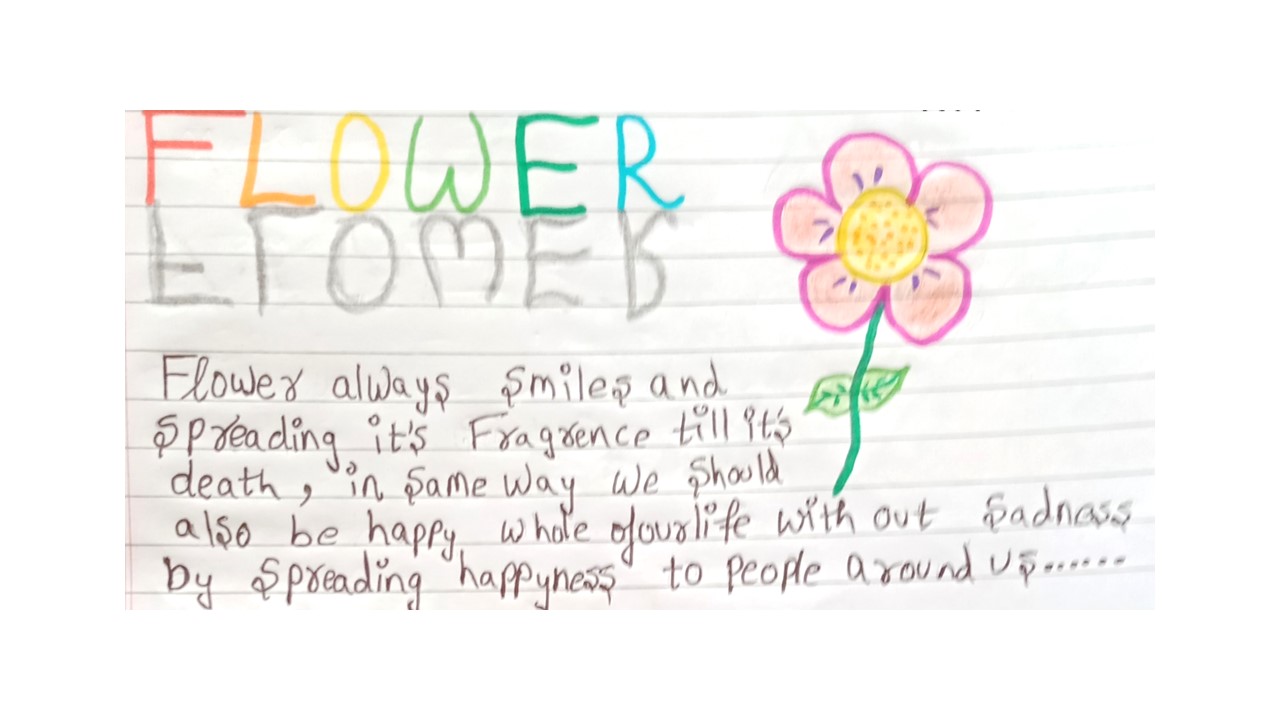 FLOWER
FLOWER
Flower always smiles and
spreading it's Fragrence till it's
death, in same way we should
also be happy whole of our life with out sadness
by spreading "happyness" to people around us......